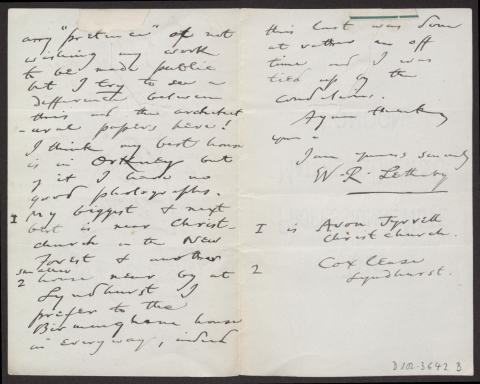 any "pretence" of not
wishing my work
to be made public
but I try to see a
difference between
this and the architect
-ural papers here!
I think my best house
is in Orkney but
of it I have no
good photographs.
1 My biggest & next
best is near Christ-
church in the New
Forest & another
smaller
2 house near by at
Lyndhurst I
prefer to the
Birmingham house
in every way, indeed
this last was done
at rather an off
time and I was
tied up by the
conditions.
Again thanking
you
I am yours sincerely
W. R. Lethaby
1 is Avon Tyrrell
Christchurch.
2 Cox Lease
Lyndhurst.
D102-3642 B